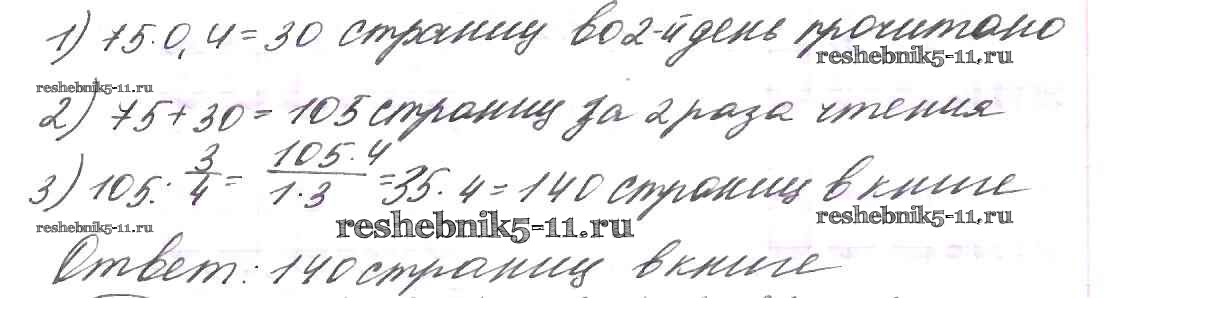 1) 75·0,4=30 страниц во 2-й день прочитано
reshebnik5-11.ru
reshebnik5-11.ru
2) 75+30=105 страниц за 2 раза чтения
3) 105 : 3/4 = 105·4/1·3 = 35·4=140 страниц в книге
reshebnik5-11.ru
reshebnik5-11.ru
reshebnik5-11.ru
Ответ: 140 страниц в книге